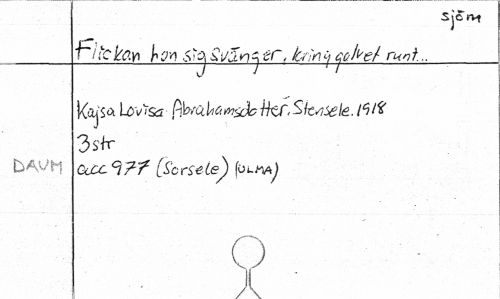 sjöm
Flickan hon sig svänger, kring golvet runt...
Kajsa Lovisa Abrahamsdotter, Stensele. 1918
3 str
DAUM acc 977 (Sorsele) (ULMA)